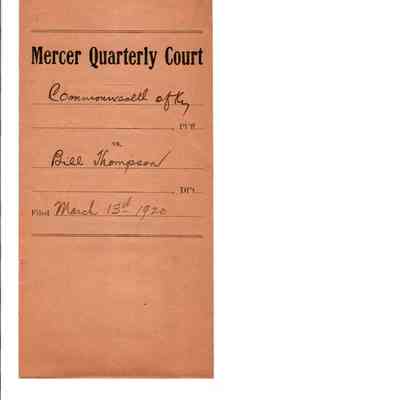 Mercer Quarterly Court
Commonwealth of Ky
, Pl'ff.
vs.
Bill Thompson
, Df't.
Filed March 13th 1920